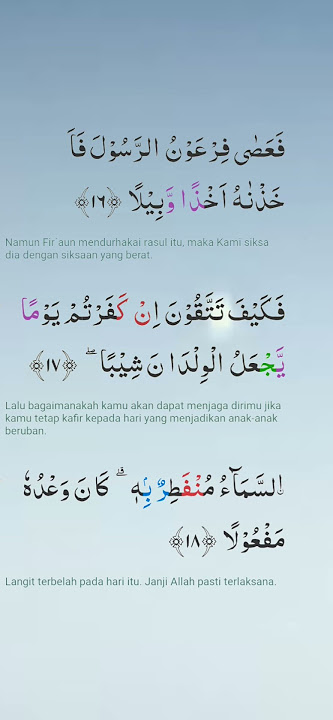 فَعَصٰى فِرْعَوْنُ الرَّسُوْلَ فَاَ
خَذْنٰهُ اَخْذًا وَّبِيْلًا ﴿١٦﴾
Namun Fir`aun mendurhakai rasul itu, maka Kami siksa
dia dengan siksaan yang berat.
فَكَيْفَ تَتَّقُوْنَ اِنْ كَفَرْتُمْ يَوْمًا
يَّجْعَلُ الْوِلْدَا نَ شِيْبًا ۖ ﴿١٧﴾
Lalu bagaimanakah kamu akan dapat menjaga dirimu jika
kamu tetap kafir kepada hari yang menjadikan anak-anak
beruban.
ٱلسَّمَآءُ مُنْفَطِرٌۢ بِهٖ ۗ كَانَ وَعْدُهٗ
مَفْعُوْلًا ﴿١٨﴾
Langit terbelah pada hari itu. Janji Allah pasti terlaksana.